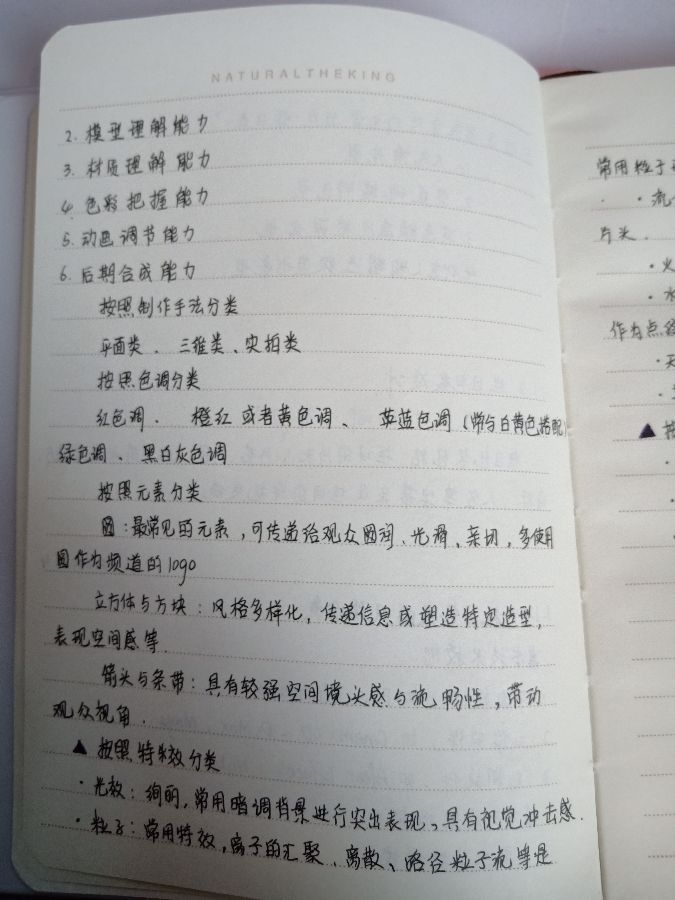 NATURALTHEKING
2. 模型理解能力
3. 材质理解能力
4. 色彩把握能力
5. 动画调节能力
6. 后期合成能力
按照制作手法分类
平面类、三维类、实拍类
按照色调分类
红色调、橙红或者黄色调、蓝色调(常与白黄色搭配)
绿色调、黑白灰色调
按照元素分类
圆:最常见的元素,可传递给观众圆润、光滑、亲切,多使用
圆作为频道的logo
立方体与方块:风格多样化,传递信息或塑造特定造型,
表现空间感等
箭头与条带:具有较强空间境头感与流畅性,带动
观众视角.
▲ 按照特效分类
·光效:绚丽,常用暗调背景进行突出表现、具有视觉冲击感.
·粒子:常用特效,离子的汇聚、离散、路径粒子流等是
常用粒子
·流
片头.
·火
·水
作为点
·天
▲ 按